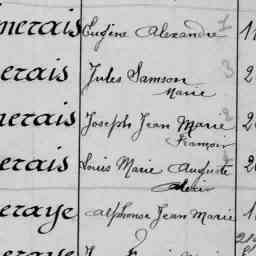 merais Eugène Alexandre 1
erais Jules Samson 3
Marie
merais Joseph Jean Marie 2
François
erais Louis Marie Auguste
Alexis
eraye Alphonse Jean Marie
eraye